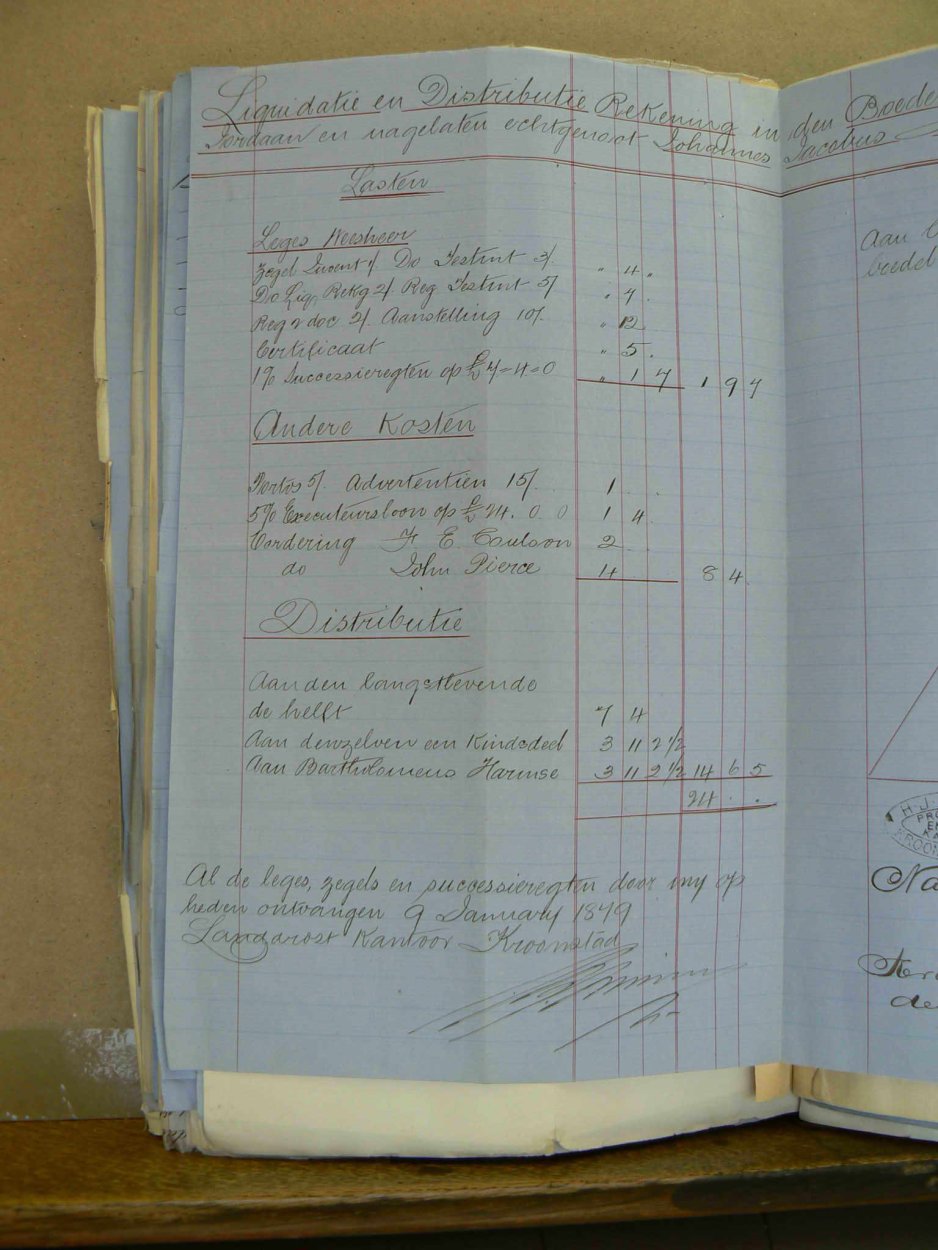 Liquidatie en Distributie Rekening in den Boede
Jordaan en nagelaten echtgenoot Johannes Jacobus
Lasten
Leges Weesheer
Zegel Invent 1/. Do Testmt 3/. " 4 "
Do Liq. Rekg 2/. Reg Testmt 5/ " 7 .
Reg 2 doc 2/. Aanstelling 10/. " 12
Certificaat " 5 .
1% Successieregten op £ 7=4=0 " 1 7 1 9 7
Andere Kosten
Portos 5/. Advertentien 15/. 1 . .
5% Executeursloon op £ 24. 0 0 1 4
Vordering F E Coulson 2
do John Pierce 4 8 4
Distributie
Aan den langstlevende
de helft 7 4
Aan denzelven een Kindsdeel 3 11 2 1/2
Aan Bartholomeus Harmse 3 11 2 1/2 14 6 5
24 . .
Al de leges, zegels en successieregten door my op
heden ontvangen 9 January 1879
Landdrost Kantoor Kroonstad
Aan
boedel
H. J.
KROON
Na
de